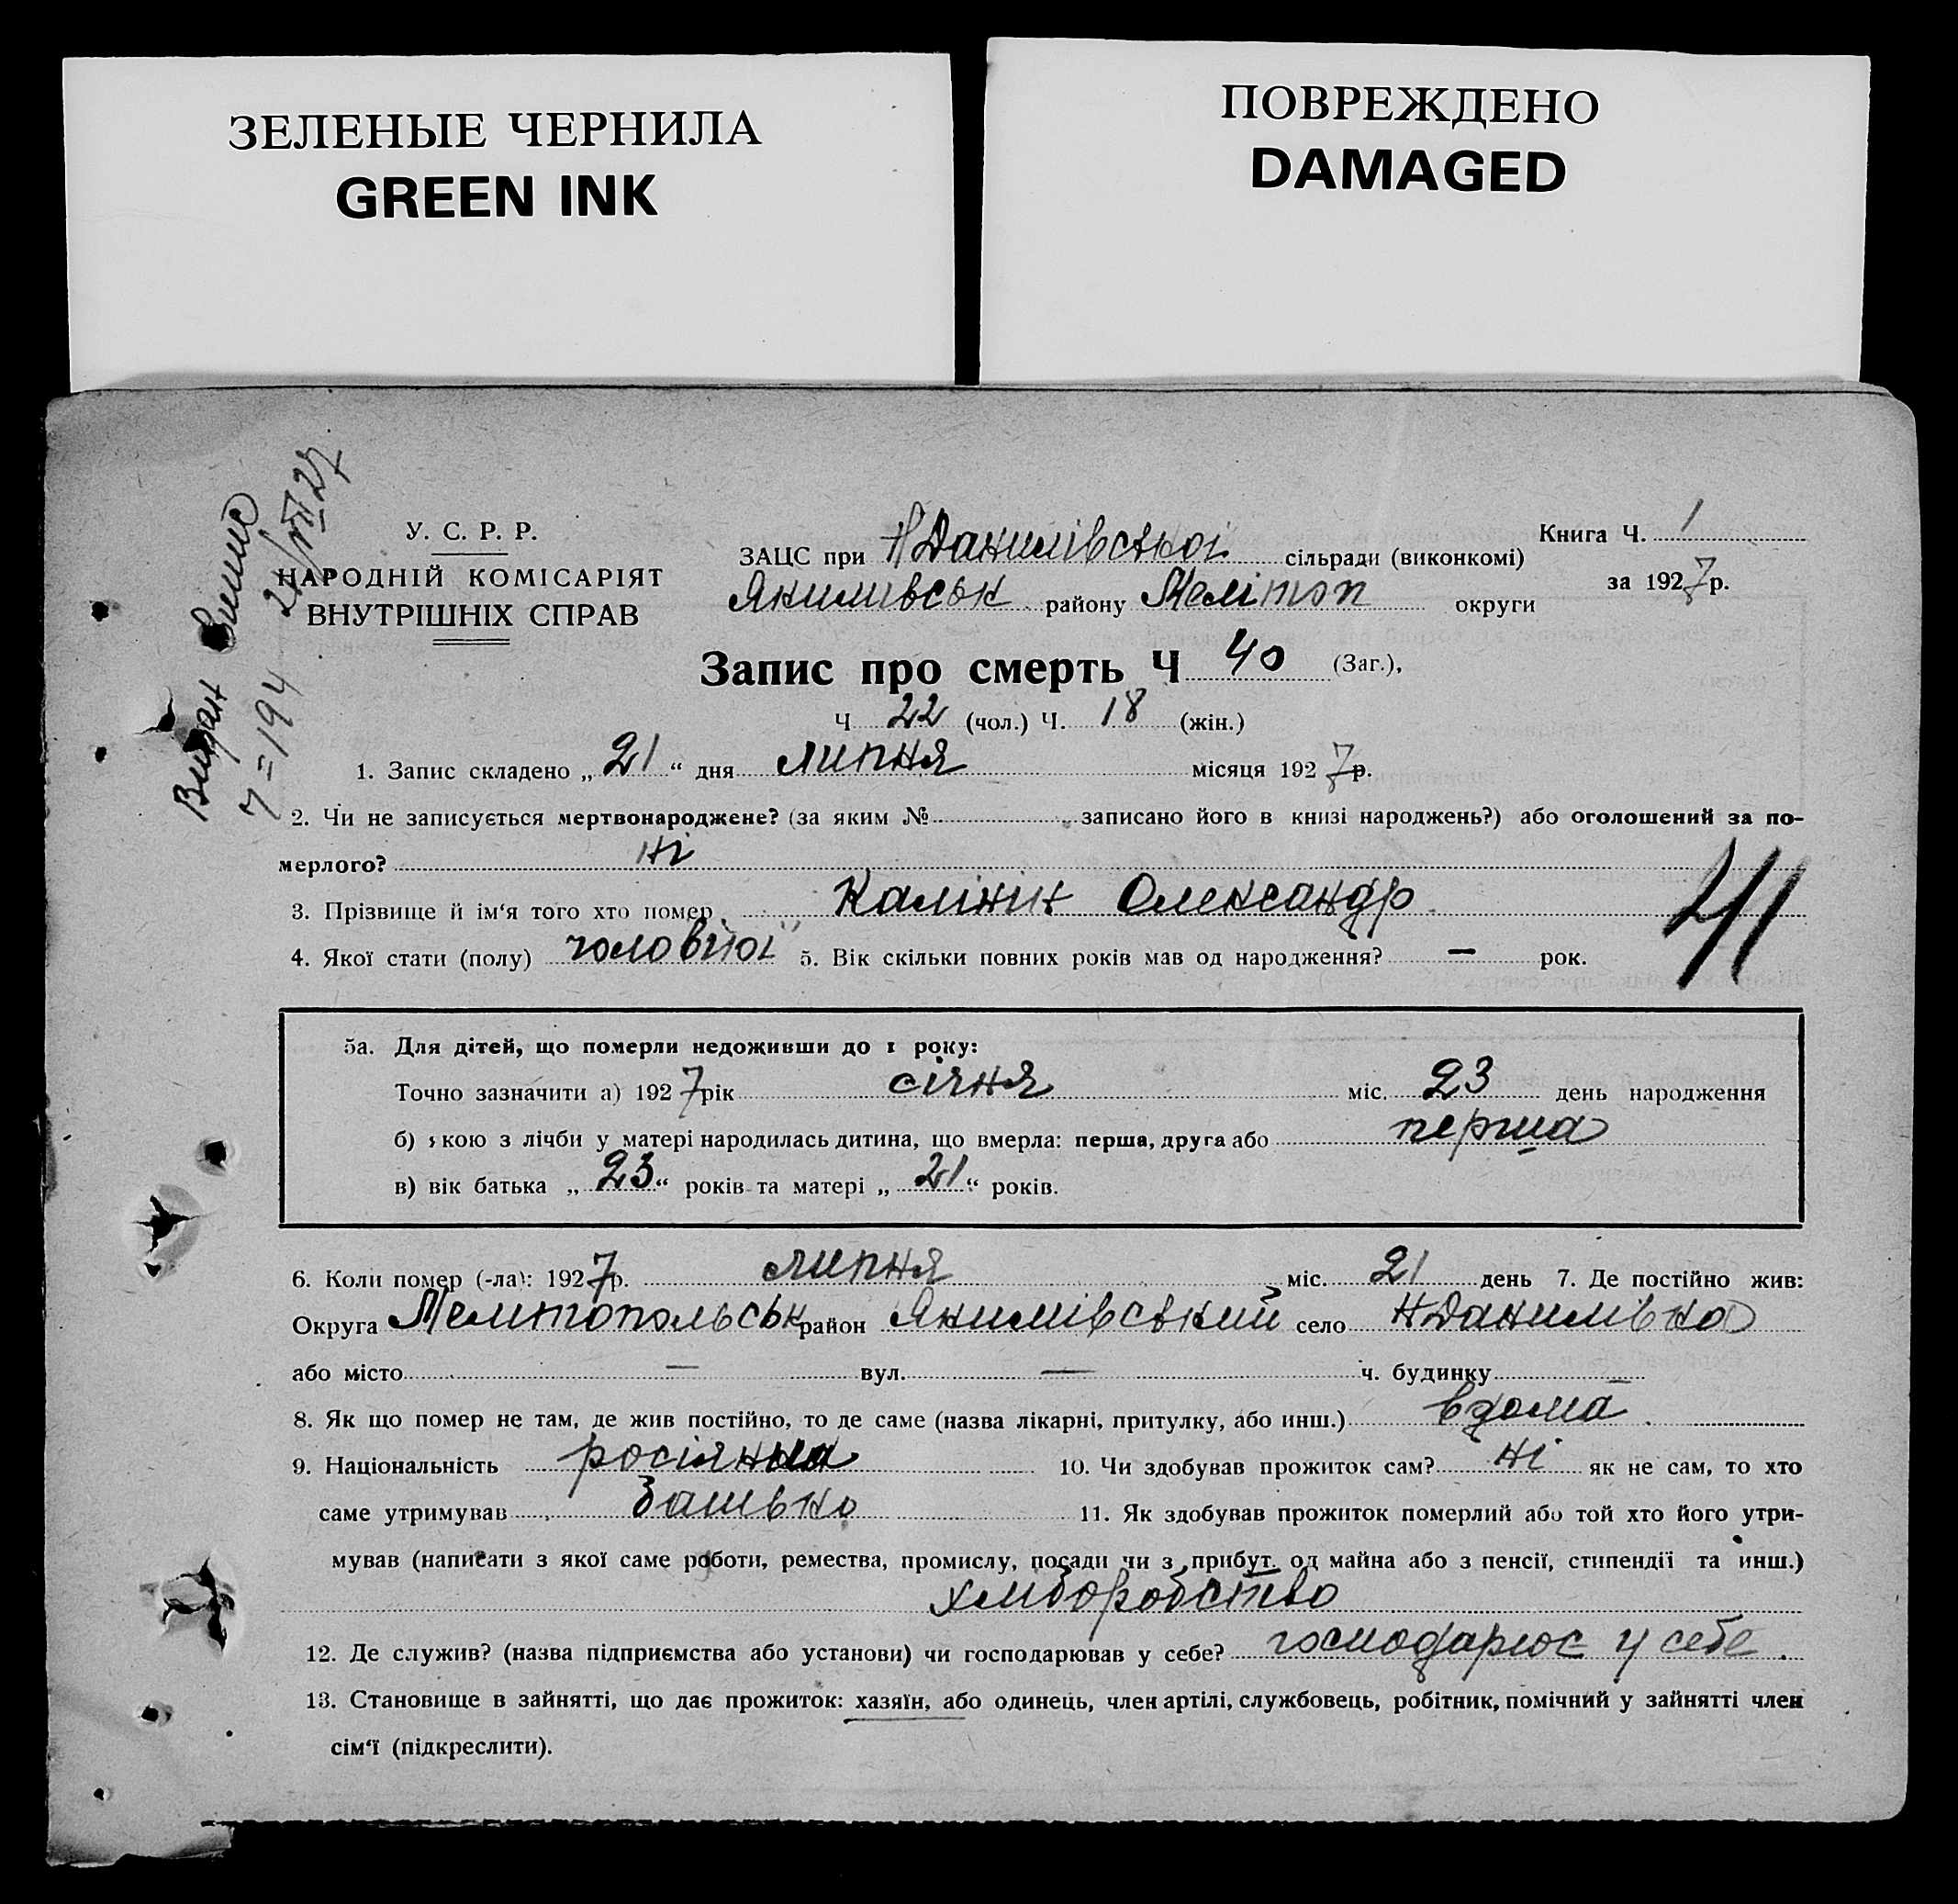 ЗЕЛЕНЫЕ ЧЕРНИЛА
GREEN INK
ПОВРЕЖДЕНО
DAMAGED
Видан Випис
7=194 21/VII 27
У. С. Р. Р.
НАРОДНІЙ КОМІСАРІЯТ
ВНУТРІШНІХ СПРАВ
ЗАЦС при Н Данилівської сільради (виконкомі)
Якимівськ району Меліт округи
Книга Ч. 1
за 1927 р.
Запис про смерть Ч 40 (Заг.),
Ч 22 (чол.) Ч. 18 (жін.)
1. Запис складено „ 21 “ дня липня місяця 1927 р.
2. Чи не записується мертвонароджене? (за яким № записано його в книзі народжень?) або оголошений за по-
мерлого? ні
3. Прізвище й ім‘я того хто помер Калінін Олександр
4. Якої стати (полу) чоловічої 5. Вік скільки повних років мав од народження? — рок.
41
5а. Для дітей, що померли недоживши до 1 року:
Точно зазначити а) 1927 рік січня міс. 23 день народження
б) якою з лічби у матері народилась дитина, що вмерла: перша, друга або перша
в) вік батька „ 23 “ років та матері „ 21 “ років.
6. Коли помер (-ла): 1927 р. липня міс. 21 день 7. Де постійно жив:
Округа Мелітопольськ район Якимівський село Н Данилівка
або місто — вул. — ч. будинку —
8. Як що помер не там, де жив постійно, то де саме (назва лікарні, притулку, або инш.) вдома
9. Національність 10. Чи здобував прожиток сам? ні як не сам, то хто
саме утримував батько 11. Як здобував прожиток померлий або той хто його утри-
мував (написати з якої саме роботи, ремества, промислу, посади чи з прибут. од майна або з пенсії, стипендії та инш.)
хліборобство
12. Де служив? (назва підприємства або установи) чи господарював у себе? господарює у себе.
13. Становище в зайнятті, що дає прожиток: хазяїн, або одинець, член артілі, службовець, робітник, помічний у зайнятті член
сім‘ї (підкреслити).